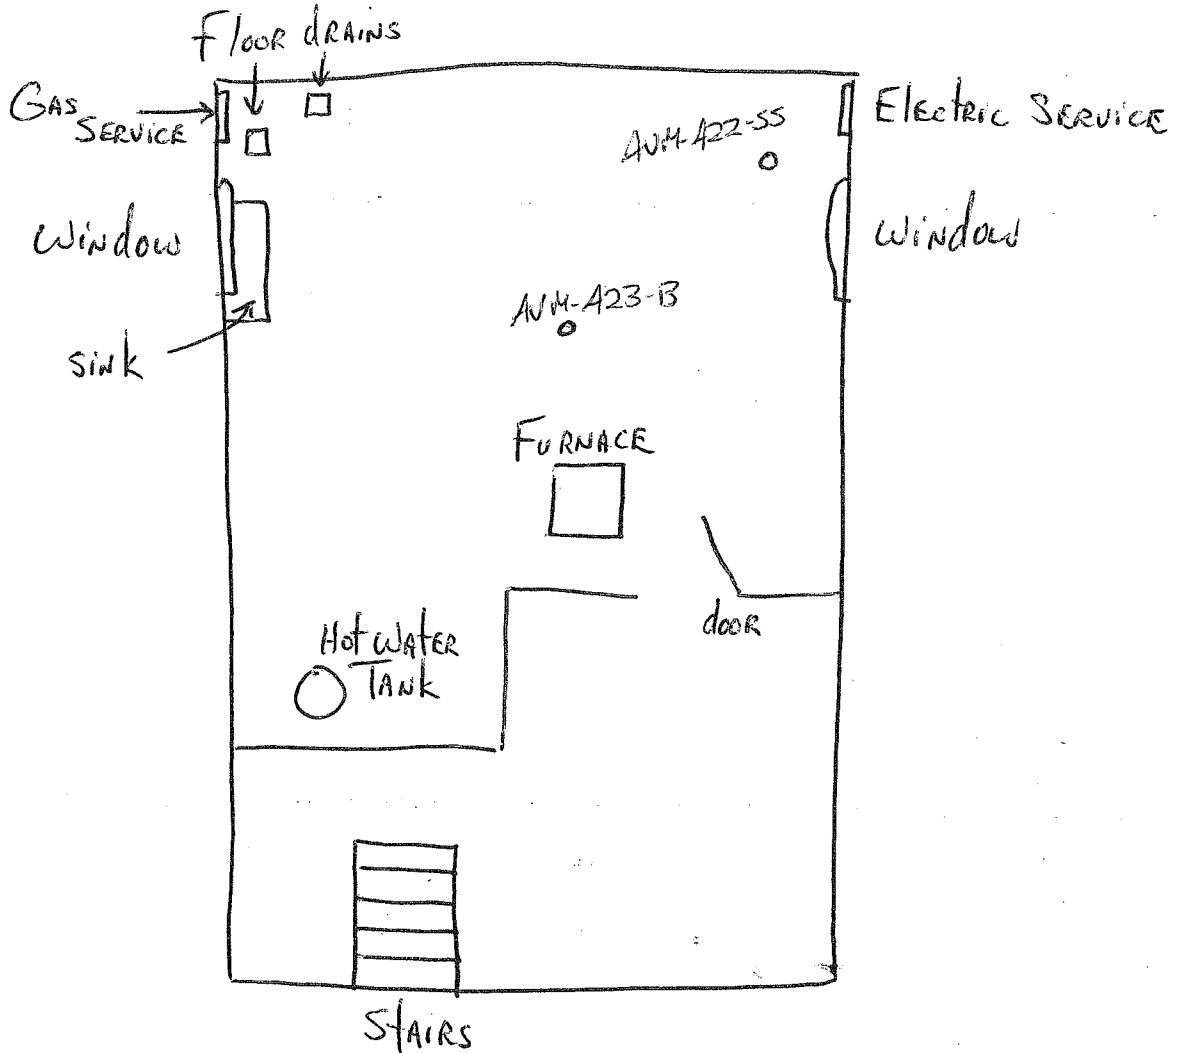 Floor drains
Gas
Service
Electric Service
AVM-A22-SS
Window
Window
AVM-A23-B
Sink
Furnace
door
Hot Water
Tank
Stairs